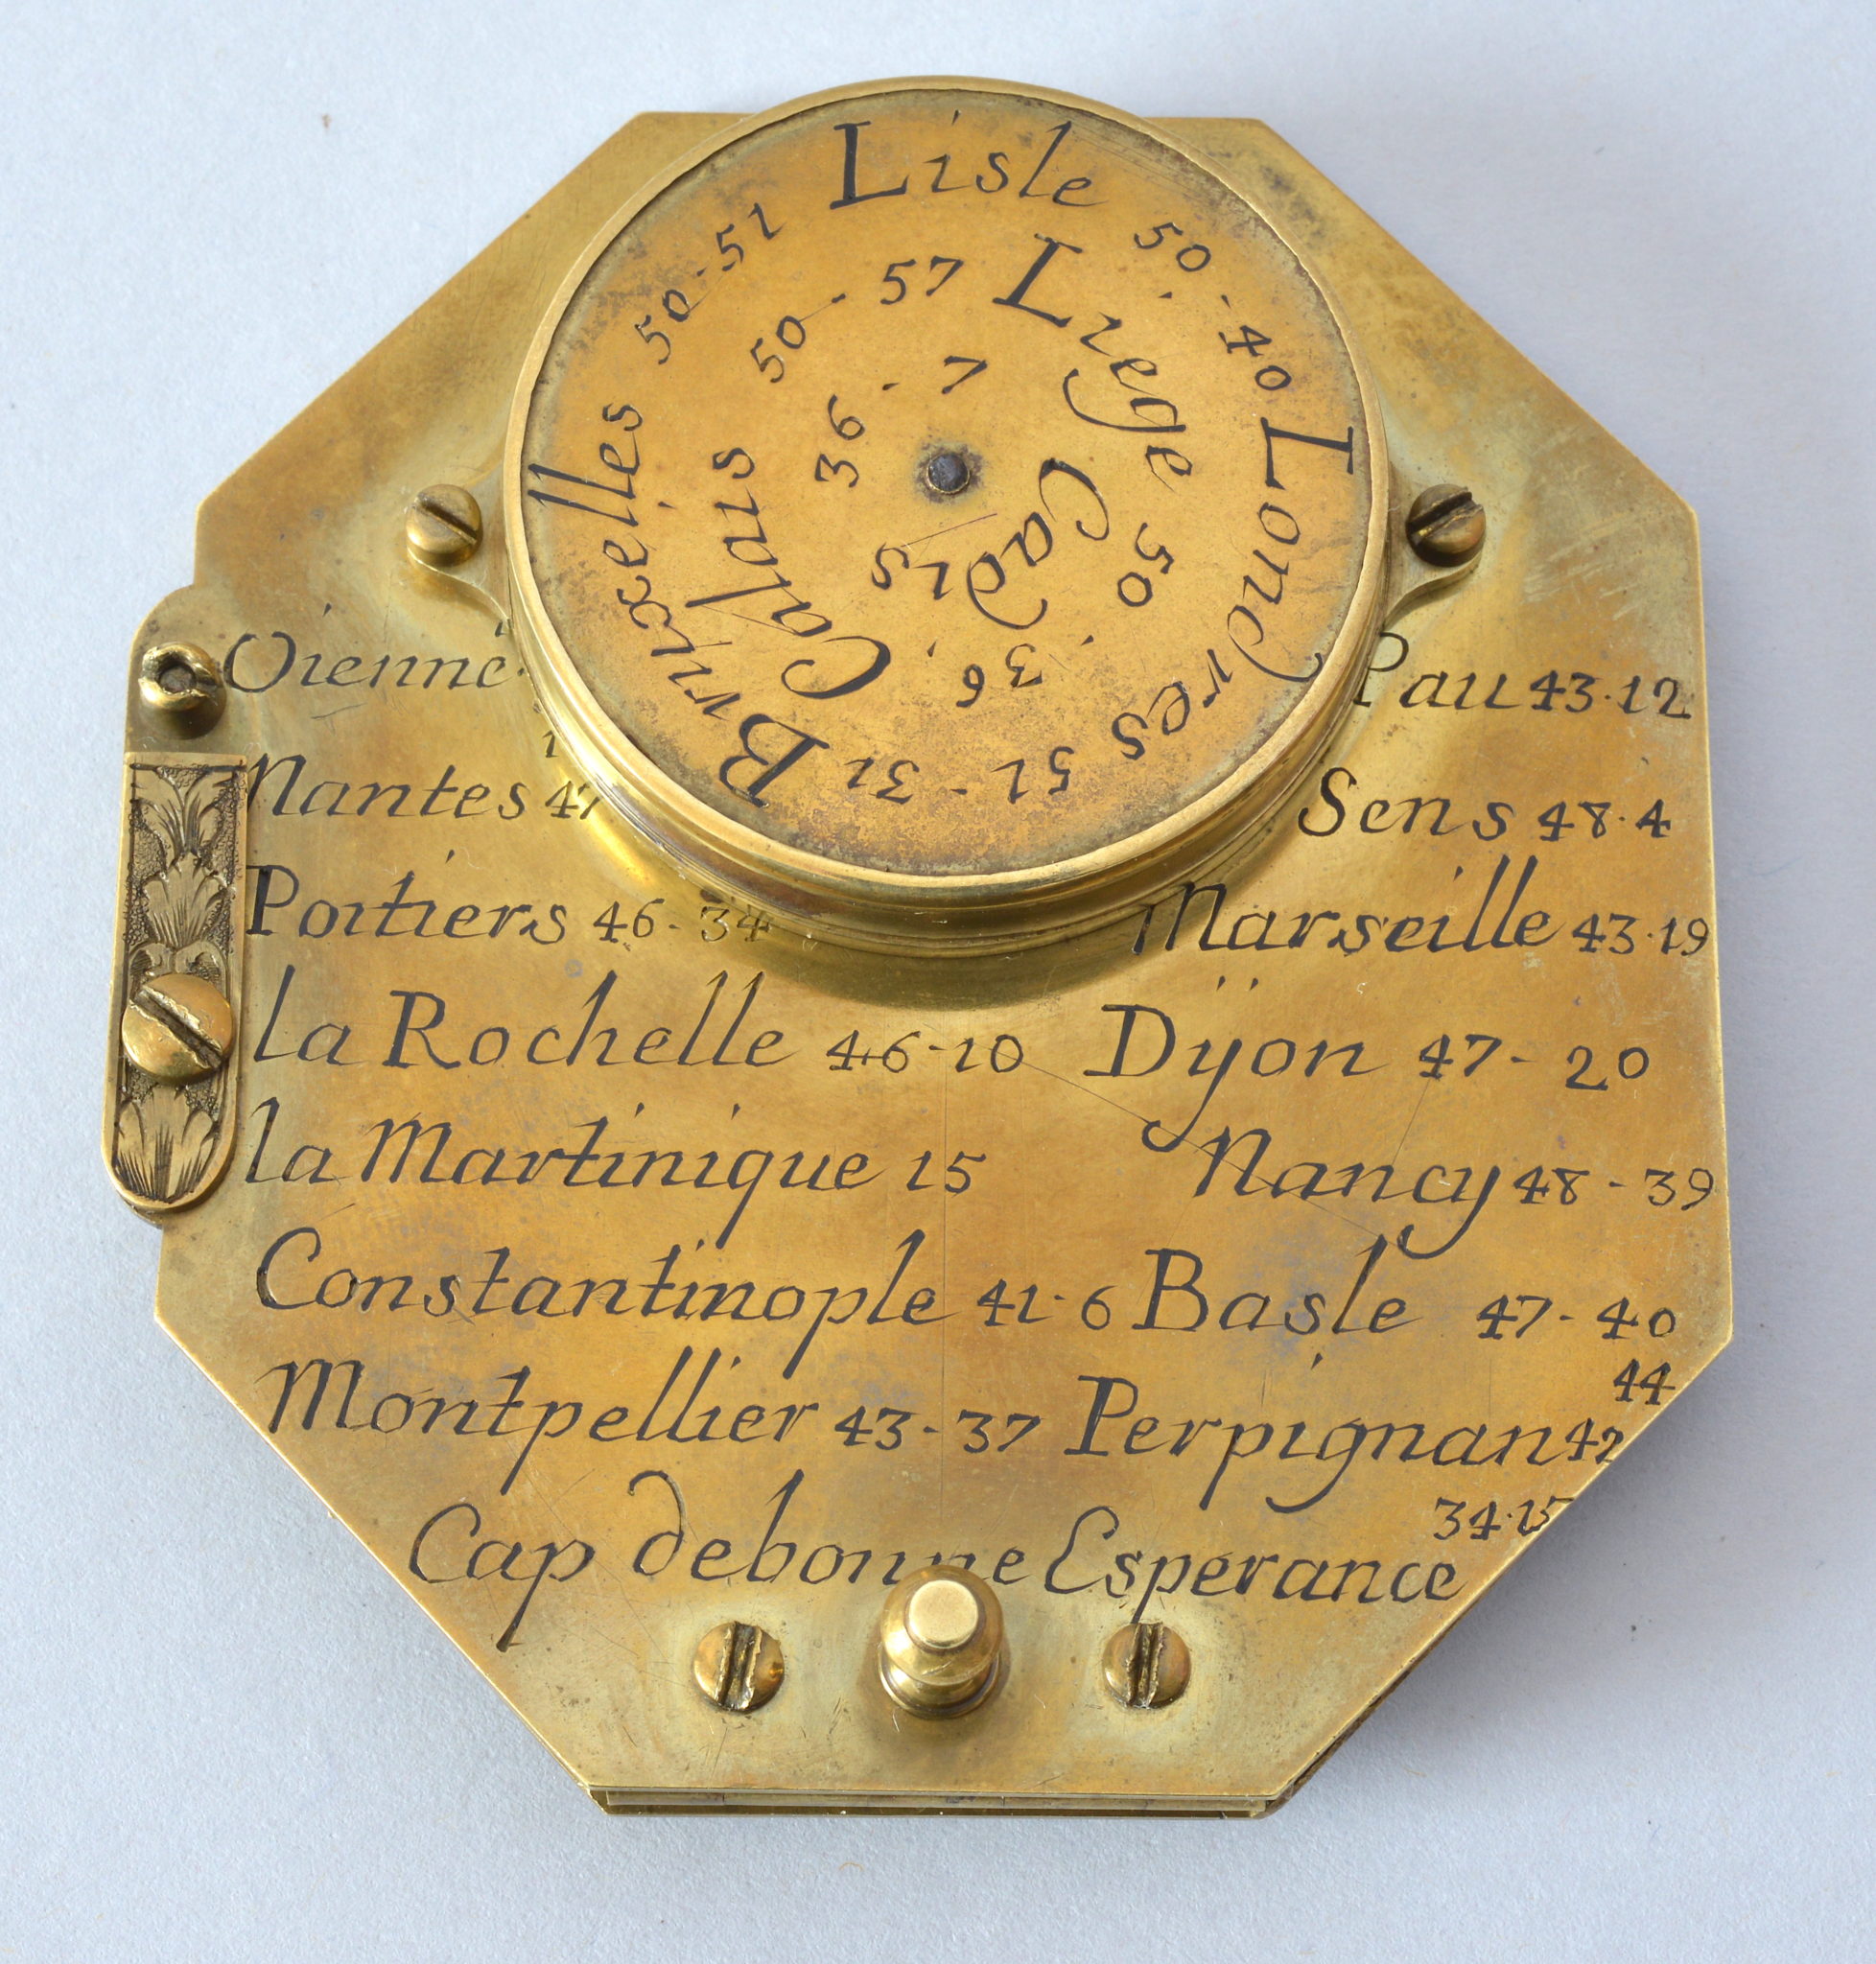 Bruxelles 50-51 Lisle 50-40 Londres 51-31
Calais 50-57 Liege 50.36
Cadis 36.7
Vienne Pau 43.12
Nantes 47 Sens 48.4
Poitiers 46-34 Marseille 43.19
la Rochelle 46-10 Dijon 47-20
la Martinique 15 Nancy 48-39
Constantinople 41-6 Basle 47-40
Montpellier 43-37 Perpignan 42
44
Cap debonne Esperance
34.15